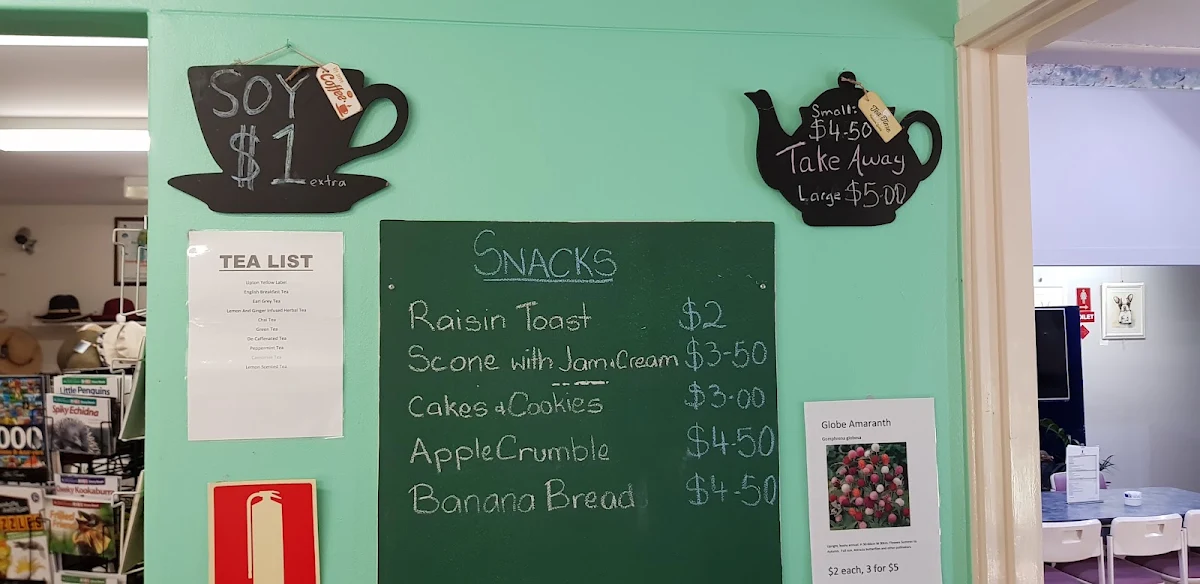 SOY
Coffee
$1 extra
Small:
$4-50
Tea Time
Take Away
Large $5-00
TEA LIST
Lipton Yellow Label
English Breakfast Tea
Earl Grey Tea
Lemon And Ginger Infused Herbal Tea
Chai Tea
Green Tea
De-Caffeinated Tea
Peppermint Tea
Camomile Tea
Lemon Scented Tea
SNACKS
Raisin Toast $2
Scone with Jam & Cream $3-50
Cakes & Cookies $3-00
Apple Crumble $4-50
Banana Bread $4-50
Little Penguins
Spiky Echidna
000
Kookaburra
Globe Amaranth
Gomphrena globosa
$2 each, 3 for $5